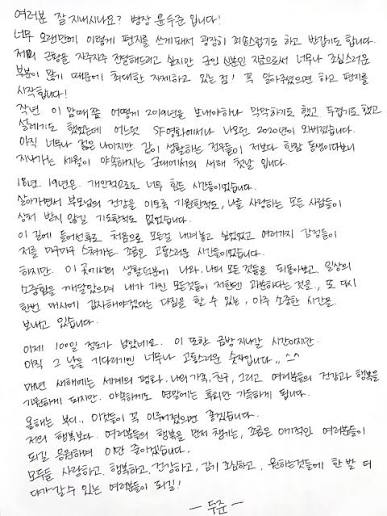 여러분 잘 지내시나요? 병장 윤두준 입니다!
너무 오랜만에 이렇게 편지를 쓰게돼서 굉장히 죄송스럽기도 하고 반갑기도 합니다.
제 근황을 자주자주 전달해드리고 싶지만 군인 신분인 지금으로서 너무나 조심스러운
부분이 많기 때문에 최대한 자제하고 있는 점! 꼭 알아주셨으면 하고 편지를
시작합니다!
작년 이 맘때쯤 어떻게 2019년을 보내야하나 막막하기도 했고 두렵기도 했고
설레기도 했었는데 어느덧 SF영화에서나 나오던 2020년이 와버렸습니다.
아직 너무나 젊은 나이지만 같이 생활하는 전우들이 저보다 한참 동생이다보니
지나가는 세월이 야속해지는 군대에서의 새해 첫날 입니다.
18년, 19년은 개인적으로도 너무 힘든 시간들이었습니다.
살아가면서 부모님의 건강을 이토록 기원한적도, 나를 사랑하는 모든 사람들이
상처 받지 않길 기도한적도 없었습니다.
이 길에 들어선후로 처음으로 모든걸 내려놓고 싶었었고 여러가지 감정들이
저를 마구마구 스쳐가는 조금은 고통스러운 시간들이었습니다.
하지만 이 곳에서의 생활덕분에 나와, 나의 모든 것들을 되돌아보고, 일상의
소중함을 깨달았으며 내가 가진 모든것들이 저한텐 과분하다는 것을, 또 다시
한번 매사에 감사해야겠다는 다짐을 할 수 있는, 아주 소중한 시간을
보내고 있습니다.
이제 100일 정도가 남았네요. 이 또한 금방 지나갈 시간이지만
아직 그 날을 기다리기엔 너무나 고통스러운 숫자입니다.. ^^
매년 새해에는 세계의 평화, 나의 가족, 친구, 그리고 여러분들의 건강과 행복을
기원하게 되지만 야속하게도 연말에는 후회만 가득하게 됩니다.
올해는 부디.. 이것들이 꼭 이루어졌으면 좋겠습니다.
저의 행복보다 여러분들의 행복을 먼저 챙기는, 조금은 이기적인 여러분들이
되길 응원하며 이만 줄이겠습니다.
모두들 사랑하고, 행복하고, 건강하고, 감기 조심하고, 원하는것들에 한 발 더
다가갈 수 있는 여러분들이 되길!
- 두준 -